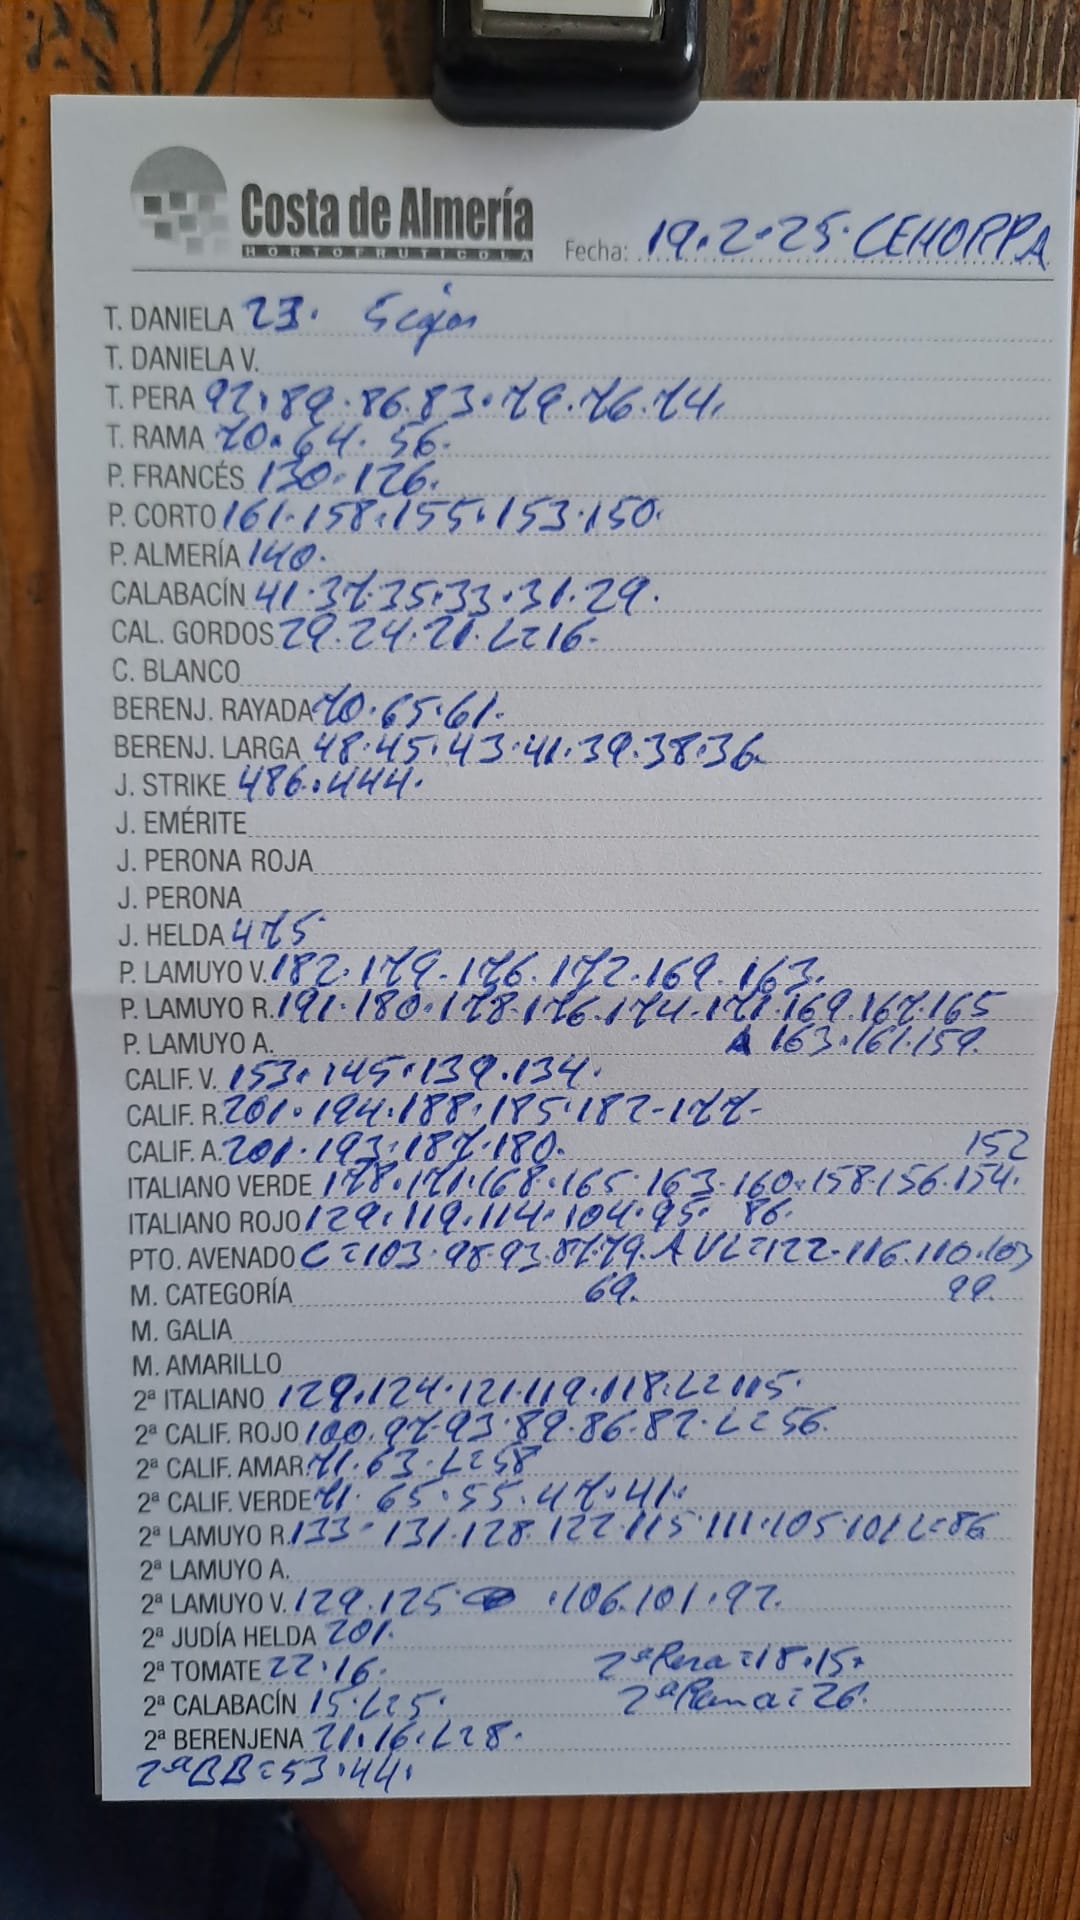 Costa de Almería
HORTOFRUTICOLA
Fecha: 19.2.25. CEHORPA
T. DANIELA 23. 5 cajas
T. DANIELA V.
T. PERA 92.89.86.83.79.76.74.
T. RAMA 70.64.56.
P. FRANCÉS 130.126.
P. CORTO 161.158.155.153.150.
P. ALMERÍA 140.
CALABACÍN 41.37.35.33.31.29.
CAL. GORDOS 29.24.21.L=16.
C. BLANCO
BERENJ. RAYADA 70.65.61.
BERENJ. LARGA 48.45.43.41.39.38.36.
J. STRIKE 486.444.
J. EMÉRITE
J. PERONA ROJA
J. PERONA
J. HELDA 475
P. LAMUYO V. 182.179.176.172.169.163.
P. LAMUYO R. 191.180.178.176.174.171.169.167.165
P. LAMUYO A. 163.161.159.
CALIF. V. 153.145.139.134.
CALIF. R. 201.194.188.185.182-177-
CALIF. A. 201.193.187.180. 152
ITALIANO VERDE 178.171.168.165.163.160.158.156.154.
ITALIANO ROJO 129.119.114.104.95. 86.
PTO. AVENADO C=103.98.93.87.79. A VL=122.116.110.103
M. CATEGORÍA 69. 99.
M. GALIA
M. AMARILLO
2ª ITALIANO 129.124.121.119.118.L=115.
2ª CALIF. ROJO 100.97.93.89.86.82.L=56.
2ª CALIF. AMAR. 71.63.L=58
2ª CALIF. VERDE 71.65.55.47.41.
2ª LAMUYO R. 133-131.128.122.115.111.105.101 L=86
2ª LAMUYO A.
2ª LAMUYO V. 129.125 .106.101.92.
2ª JUDÍA HELDA 201.
2ª TOMATE 22.16. 2ª Pera=18.15.
2ª CALABACÍN 15.L=5. 2ª Rama=26.
2ª BERENJENA 21.16.L=8.
2ª BB=53.44.